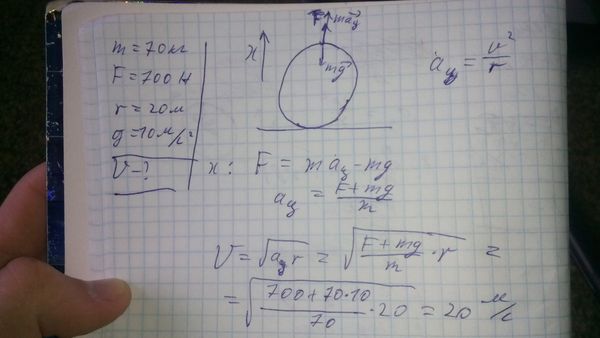 m = 70 кг
F = 700 Н
r = 20 м
g = 10 м/с²
V - ?
x
mg⃗
aц = v²/r
x: F = maц - mg
aц = (F + mg)/m
V = √(aц r) = √((F + mg)/m · r) =
= √((700 + 70·10)/70 · 20) = 20 м/с